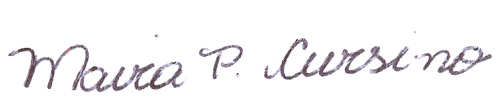 Maira P. Cursino